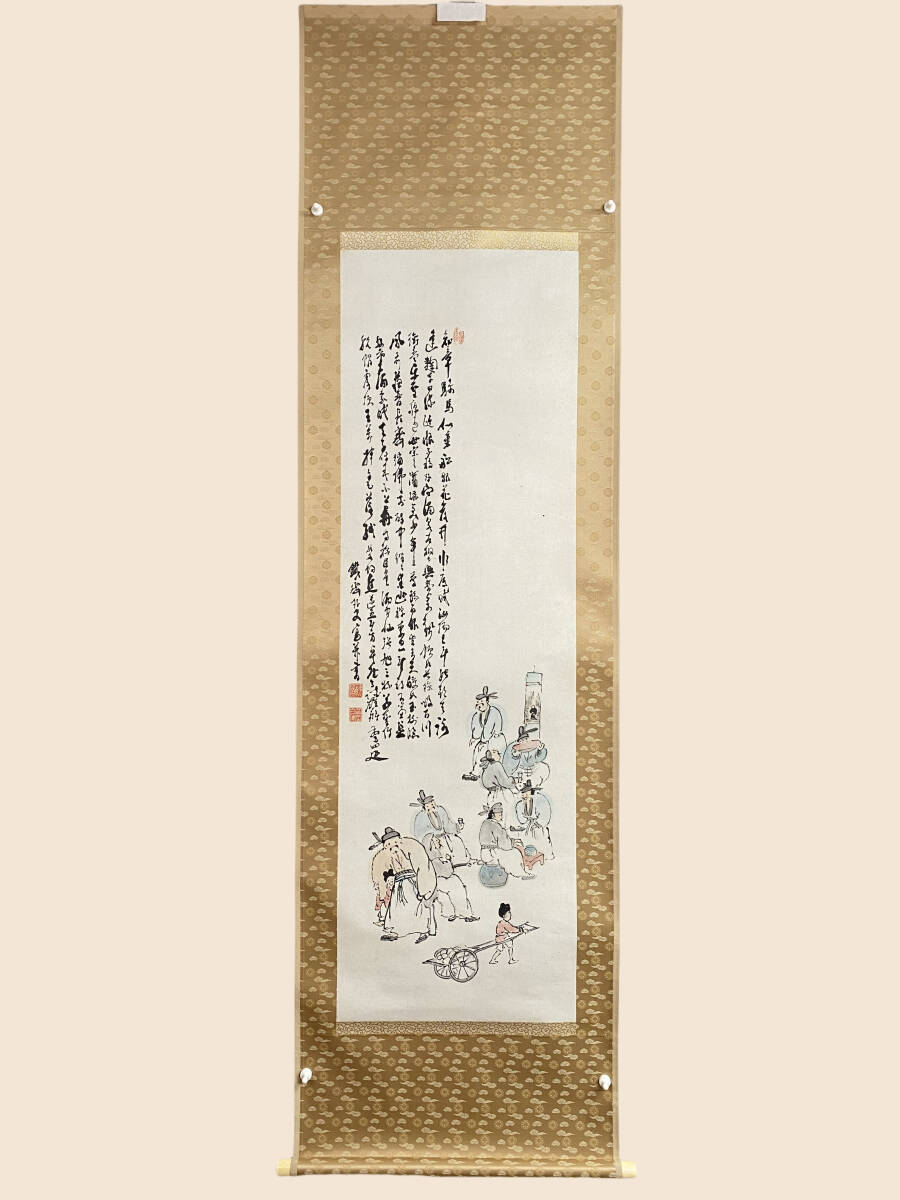 知章騎馬似乘船眼花落井水底眠汝陽三斗始朝天道
逢麴車口流涎恨不移封向酒泉左相日興費萬錢飲如長鯨吸百川
銜杯樂聖稱避賢宗之瀟灑美少年舉觴白眼望青天皎如玉樹臨
風前蘇晉長齋繡佛前醉中往往愛逃禪李白一斗詩百篇長
安市上酒家眠天子呼來不上船自稱臣是酒中仙張旭三杯草聖傳
脫帽露頂王公前揮毫落紙如雲煙焦遂五斗方卓然高談雄辯驚四筵
鐵齋外史寫并書